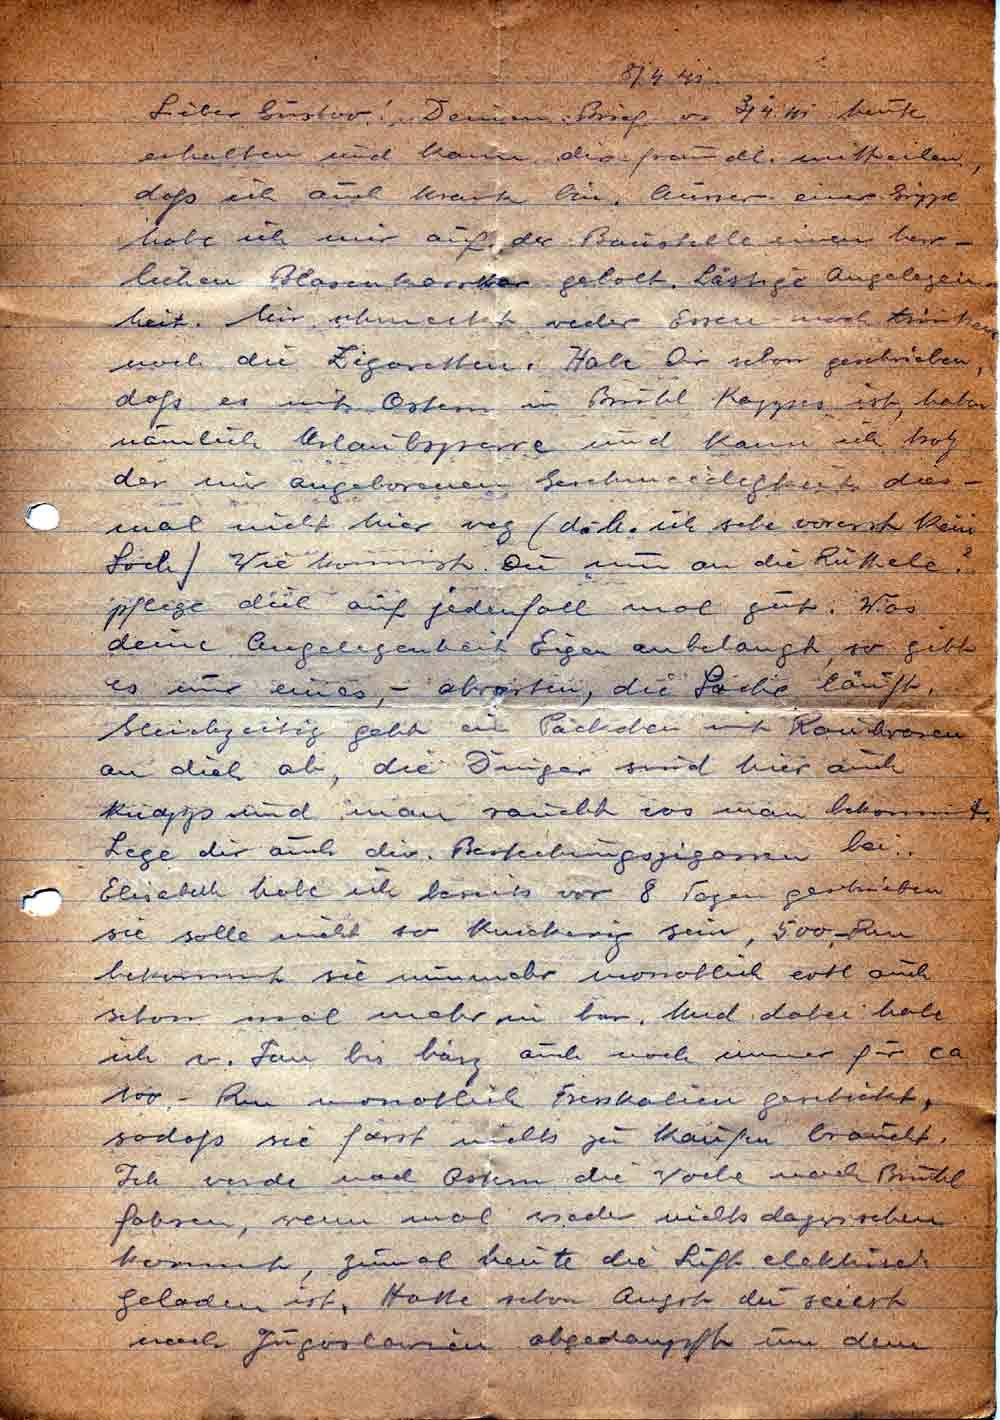 8/4 41.
Lieber Gustav! Deinen Brief v. 3/4.41 heute
erhalten und kann dir freundl. mitteilen,
daß ich auch krank bin. Ausser einer Grippe
habe ich mir auf der Baustelle einen herr-
lichen Blasenkatarrh geholt. Lästige Angelegen-
heit. Mir schmeckt weder Essen noch trinken
noch die Zigaretten. Habe Dir schon geschrieben,
daß es mit Ostern in Brühl Kappes ist, haben
nämlich Urlaubssperre und kann ich trotz
der mir angeborenen Geschmeidigkeit dies-
mal nicht hier weg (d.h. ich sehe vorerst kein
Loch) Wie kommst Du nun an die
pflege dich auf jedenfall mal gut. Was
deine Angelegenheit Eigen anbelangt, so gibt
es nur eines, – abwarten, die Sache läuft.
Gleichzeitig geht ein Päckchen mit Rauchwaren
an dich ab, die Dinger sind hier auch
knapp und man raucht was man bekommt.
Lege dir auch div. Bestechungszigarren bei..
Elisabeth habe ich bereits vor 8 Tagen geschrieben
sie solle nicht so knickerig sein, 500,- Rm
bekommt sie nunmehr monatlich evtl auch
schon mal mehr in bar. Und dabei habe
ich v. Jan bis März auch noch immer für ca
100.- Rm monatlich Fresskalien geschickt,
sodaß sie fast nichts zu kaufen braucht.
Ich werde nach Ostern die Woche nach Brühl
fahren, wenn mal wieder nichts dazwischen
kommt, zumal heute die Luft elektrisch
geladen ist. Hatte schon Angst du seiest
nach Jugoslawien abgedampft um dem